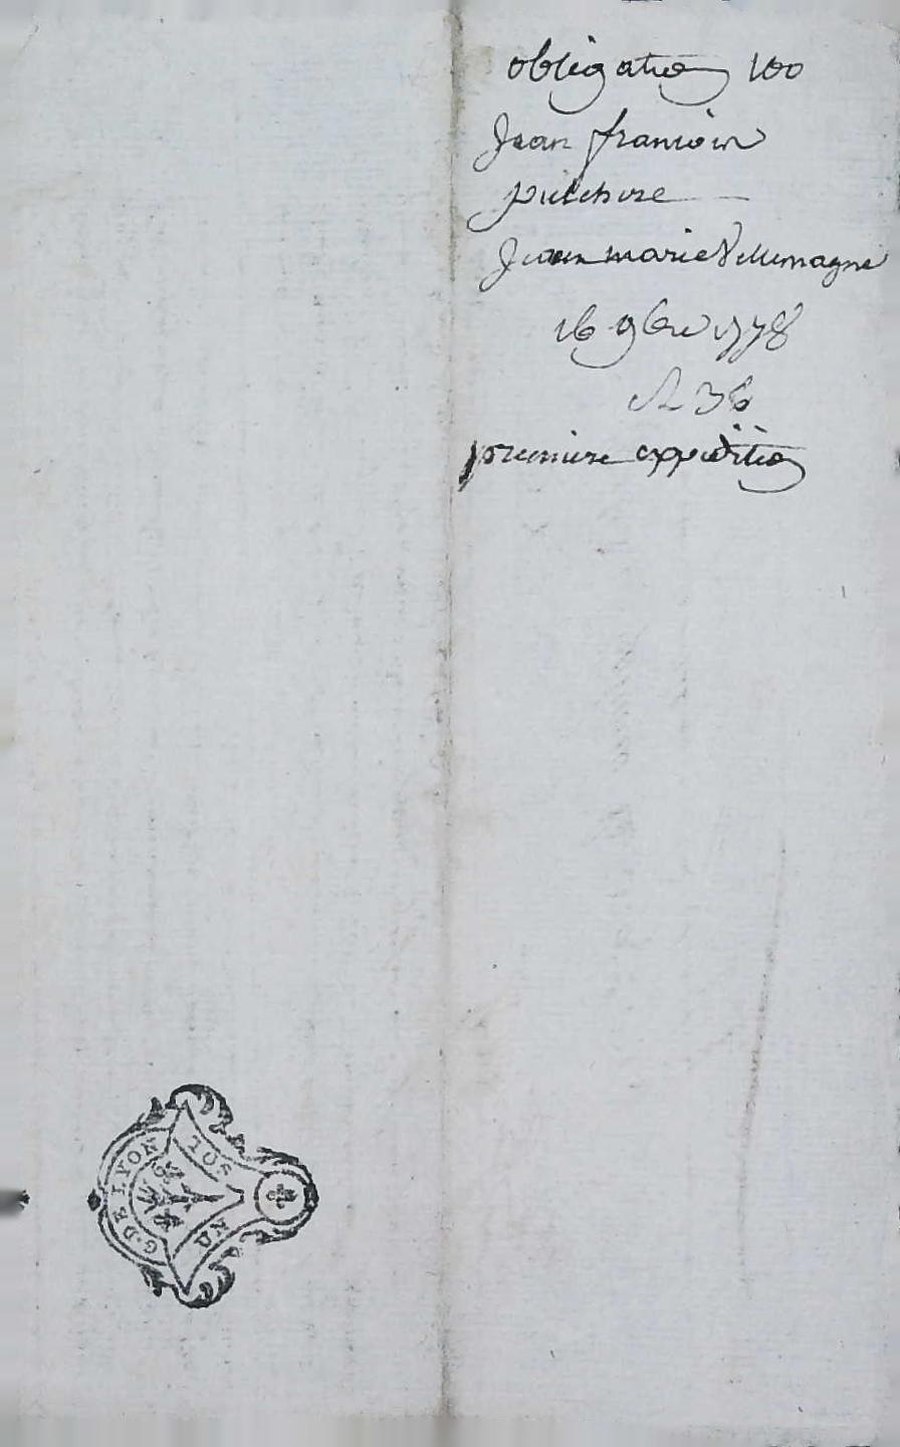 obligation 100
Jean francois
pulchire
Jean marie villemagne
16 9bre 1778
n 36
premiere expedition
G·DE LYON
UN SOL